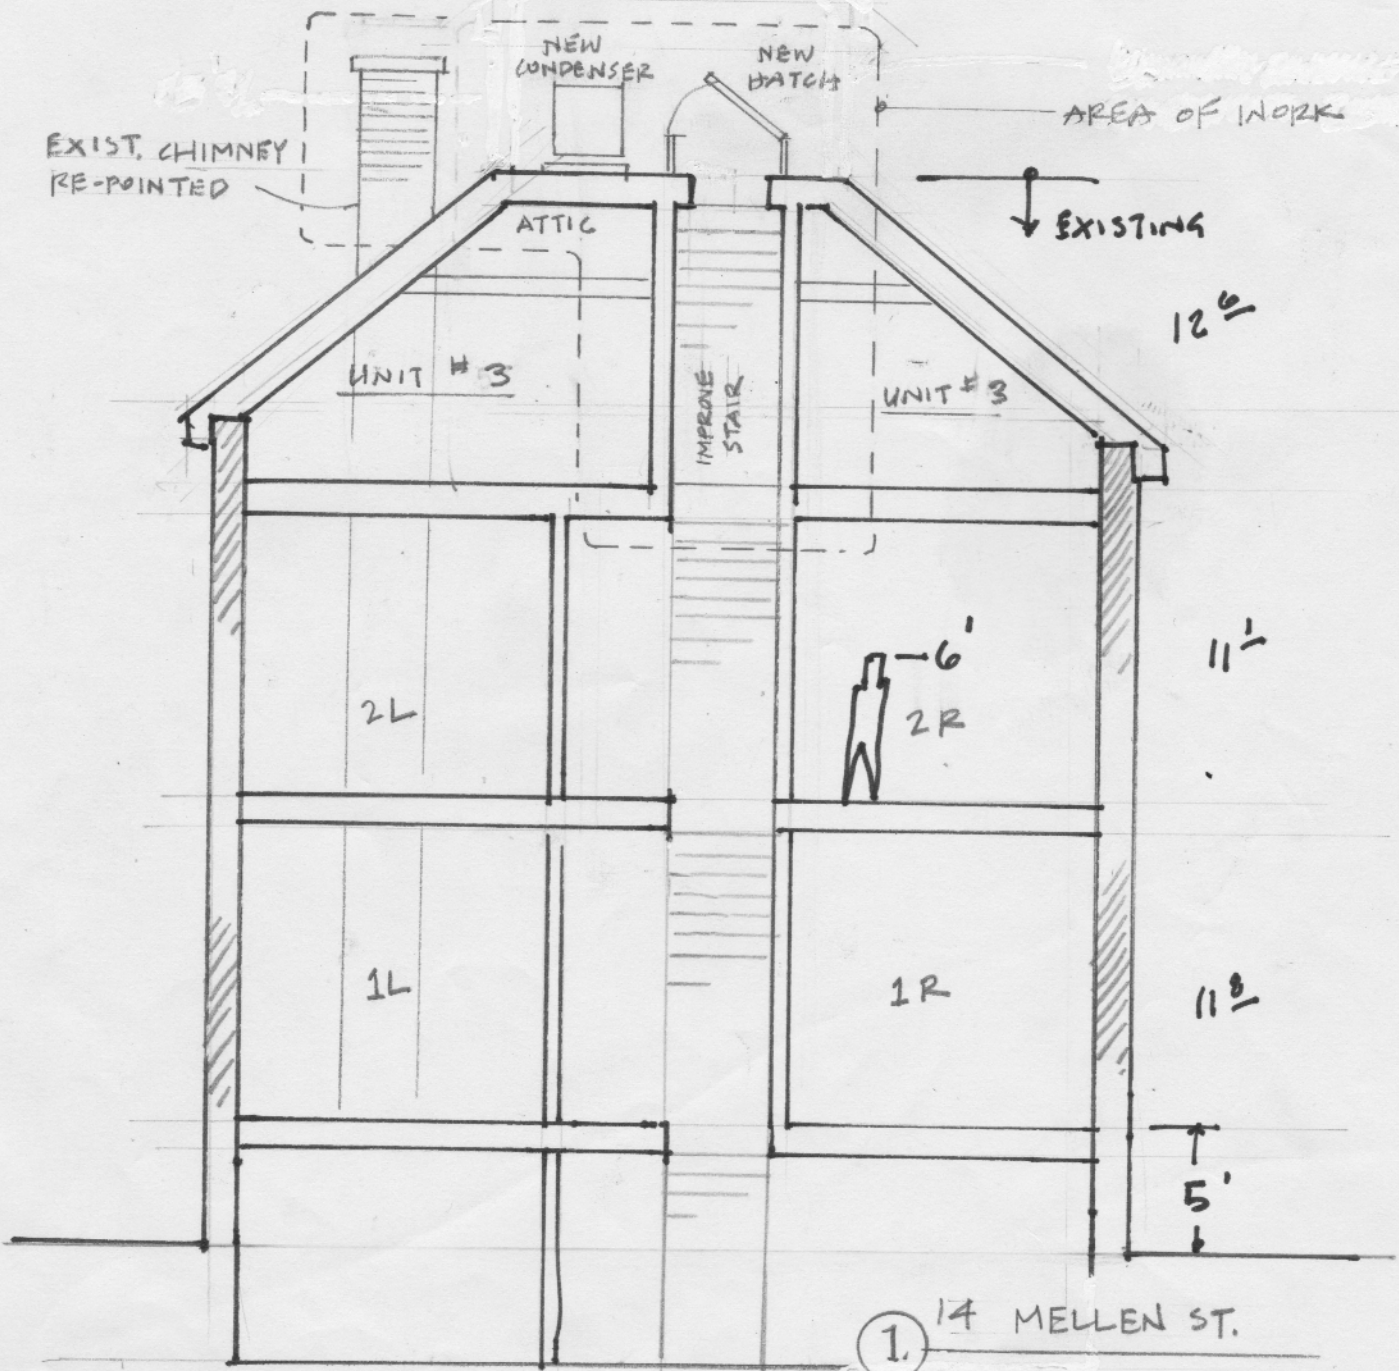 NEW
CONDENSER
NEW
HATCH
AREA OF WORK
EXIST. CHIMNEY
RE-POINTED
ATTIC
EXISTING
12 6
UNIT # 3
IMPROVE
STAIR
UNIT # 3
6'
11 1
2L
2R
1L
1R
11 8
5'
1. 14 MELLEN ST.